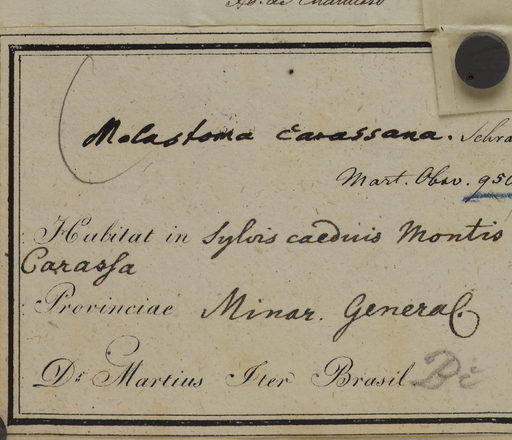 Melastoma Carassana. Schra
Mart. Obsv. 950
Habitat in Sylvis caeduis Montis
Carassa
Provinciae Minar. General.
Dr. Martius Iter Brasil